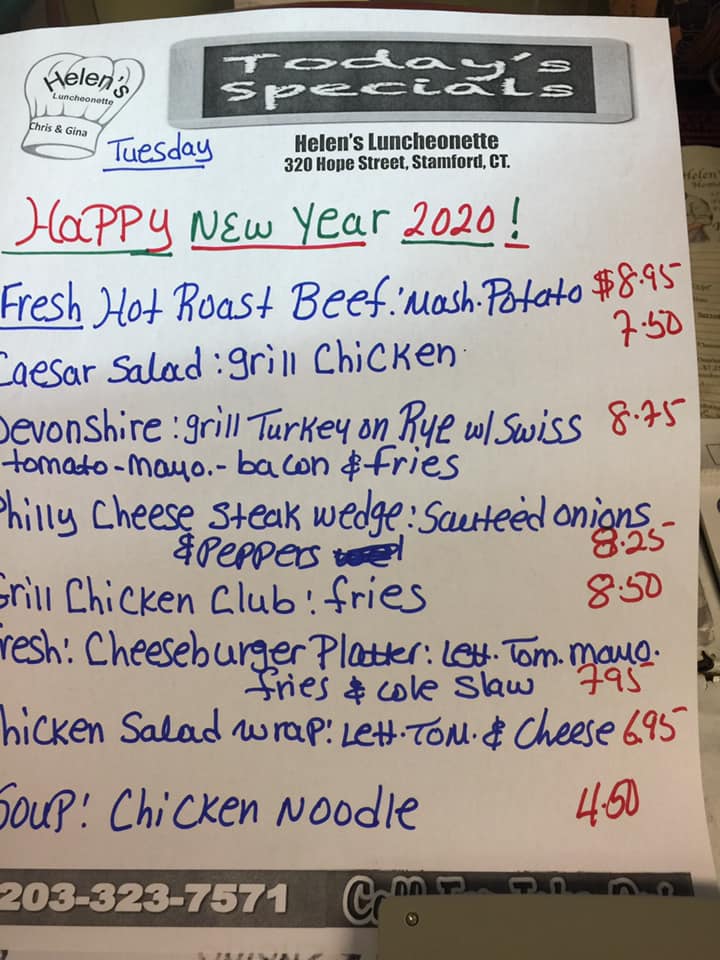 Helen's
Luncheonette
Chris & Gina
Today's
Specials
Tuesday
Helen's Luncheonette
320 Hope Street, Stamford, CT.
Happy New Year 2020!
Fresh Hot Roast Beef: Mash. Potato $8.95
Caesar Salad: grill Chicken 7.50
Devonshire: grill Turkey on Rye w/ Swiss 8.75
tomato-mayo.-bacon & fries
Philly Cheese Steak wedge: Sauteéd onions
& Peppers 8.25
Grill Chicken Club: fries 8.50
resh: Cheeseburger Platter: Lett. Tom. mayo.
fries & cole Slaw 795
hicken Salad wrap: Lett. Tom. & Cheese 6.95
Soup: Chicken Noodle 4.50
203-323-7571